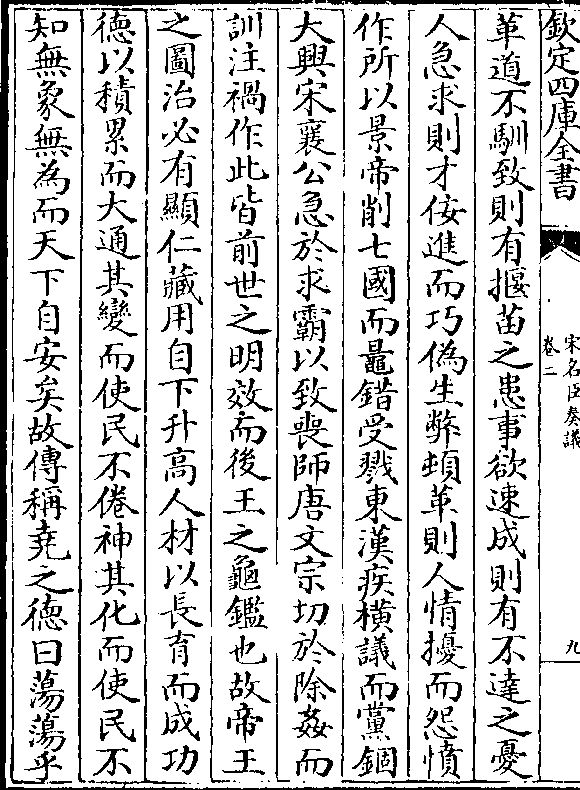 欽定四庫全書
宋名臣奏議
卷二
九
革道不馴致則有揠苗之患事欲速成則有不達之憂
人急求則才侫進而巧偽生弊頓革則人情擾而怨憤
作所以景帝削七國而鼂錯受戮東漢疾橫議而黨錮
大興宋襄公急於求霸以致喪師唐文宗切於除姦而
訓注禍作此皆前世之明效而後王之龜鑑也故帝王
之圖治必有顯仁藏用自下升高人材以長育而成功
德以積累而大通其變而使民不倦神其化而使民不
知無象無為而天下自安矣故傳稱堯之德曰蕩蕩乎